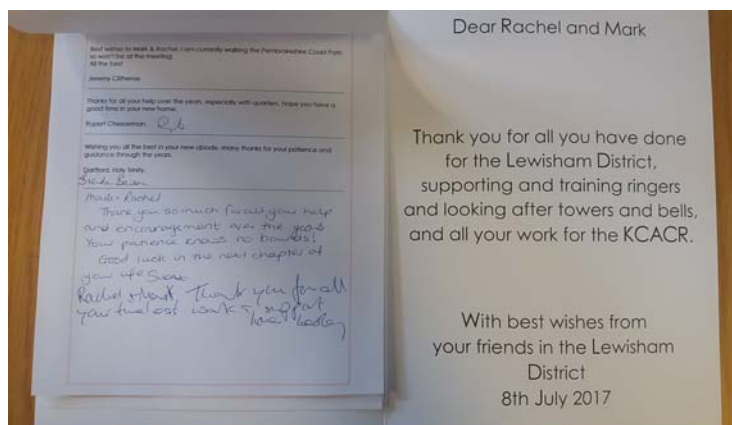 Best wishes to Mark & Rachel. I am currently walking the Pembrokeshire Coast Path
so won't be at the meeting.
All the best
Jeremy Clitherow
Thanks for all your help over the years, especially with quarters. Hope you have a
good time in your new home.
Rupert Cheeseman
Wishing you all the best in your new abode, many thanks for your patience and
guidance through the years.
Dartford, Holy Trinity.
Mark & Rachel
Thank you so much for all your help
and encouragement over the years
Your patience knows no bounds!
Good luck in the next chapter of
your life
Rachel & Mark, Thank you for all
your work & support
love
Dear Rachel and Mark
Thank you for all you have done
for the Lewisham District,
supporting and training ringers
and looking after towers and bells,
and all your work for the KCACR.
With best wishes from
your friends in the Lewisham
District
8th July 2017